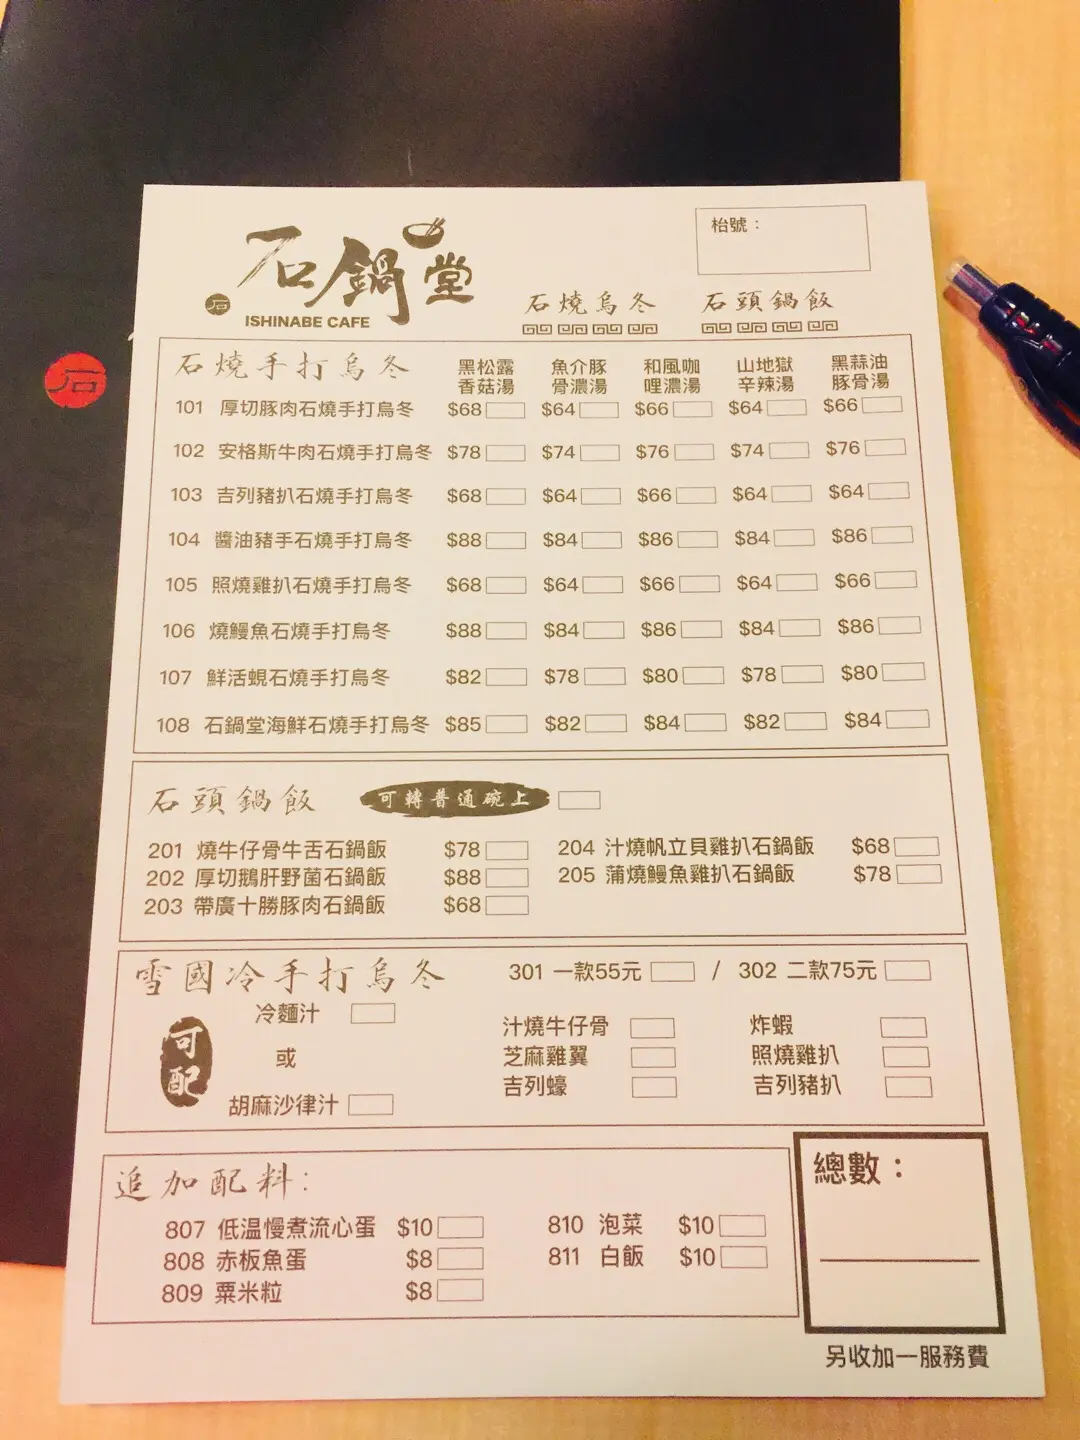 石鍋堂
石
ISHINABE CAFE
枱號：
石燒烏冬 石頭鍋飯
石
石燒手打烏冬 黑松露香菇湯 魚介豚骨濃湯 和風咖哩濃湯 山地獄辛辣湯 黑蒜油豚骨湯
101 厚切豚肉石燒手打烏冬 $68 $64 $66 $64 $66
102 安格斯牛肉石燒手打烏冬 $78 $74 $76 $74 $76
103 吉列豬扒石燒手打烏冬 $68 $64 $66 $64 $64
104 醬油豬手石燒手打烏冬 $88 $84 $86 $84 $86
105 照燒雞扒石燒手打烏冬 $68 $64 $66 $64 $66
106 燒鰻魚石燒手打烏冬 $88 $84 $86 $84 $86
107 鮮活蜆石燒手打烏冬 $82 $78 $80 $78 $80
108 石鍋堂海鮮石燒手打烏冬 $85 $82 $84 $82 $84
石頭鍋飯 可轉普通碗上
201 燒牛仔骨牛舌石鍋飯 $78 204 汁燒帆立貝雞扒石鍋飯 $68
202 厚切鵝肝野菌石鍋飯 $88 205 蒲燒鰻魚雞扒石鍋飯 $78
203 帶廣十勝豚肉石鍋飯 $68
雪國冷手打烏冬 301 一款55元 / 302 二款75元
可配
冷麵汁
或
胡麻沙律汁
汁燒牛仔骨 炸蝦
芝麻雞翼 照燒雞扒
吉列蠔 吉列豬扒
追加配料：
807 低温慢煮流心蛋 $10 810 泡菜 $10
808 赤板魚蛋 $8 811 白飯 $10
809 粟米粒 $8
總數：
另收加一服務費